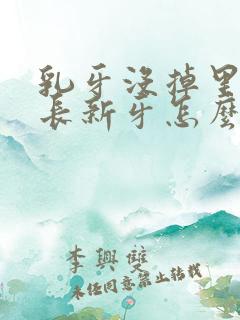 乳牙没掉里
长新牙怎麼
李興雙
未任同意禁止转载